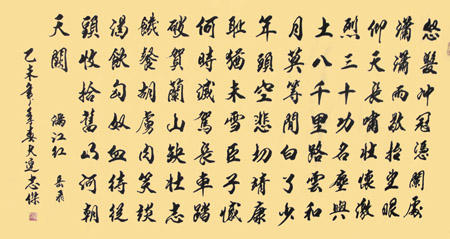 怒髮冲冠憑闌處
瀟瀟雨歇抬望眼
仰天長嘯壯懷激
烈三十功名塵與
土八千里路雲和
月莫等閒白了少
年頭空悲切靖康
恥猶未雪臣子憾
何時滅駕長車踏
破賀蘭山缺壯志
饑餐胡虜肉笑談
渴飲匈奴血待從
頭收拾舊山河朝
天闕
滿江红 岳飛
乙未年季春大連志傑